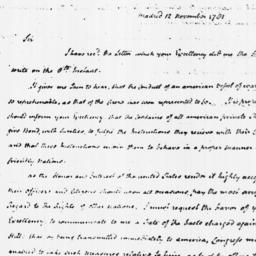 Madrid 12 November 1781
Sir
I have rec.d the Letter which your Excellency did me the
write on the 8th Instant.
It gives me Pain to hear, that the Conduct of an american
so reprehensible, as that of the Crew has been represented to be.
should inform your Excellency that the Captains of all american private
give Bond, with Sureties, to fulfil the Instructions they receive with their
and that those Instructions enjoin them to behave in a proper manner
friendly Nations.
as the Honor and Interest of the united States render it highly
their officers and Citizens should upon all occasions, pay the most
Regard to the Rights of other Nations, I must request the Favor of
Excellency to communicate to me a State of the Facts charged
that on being transmitted immediately to america, Congress
enabled to take such Measures relative to